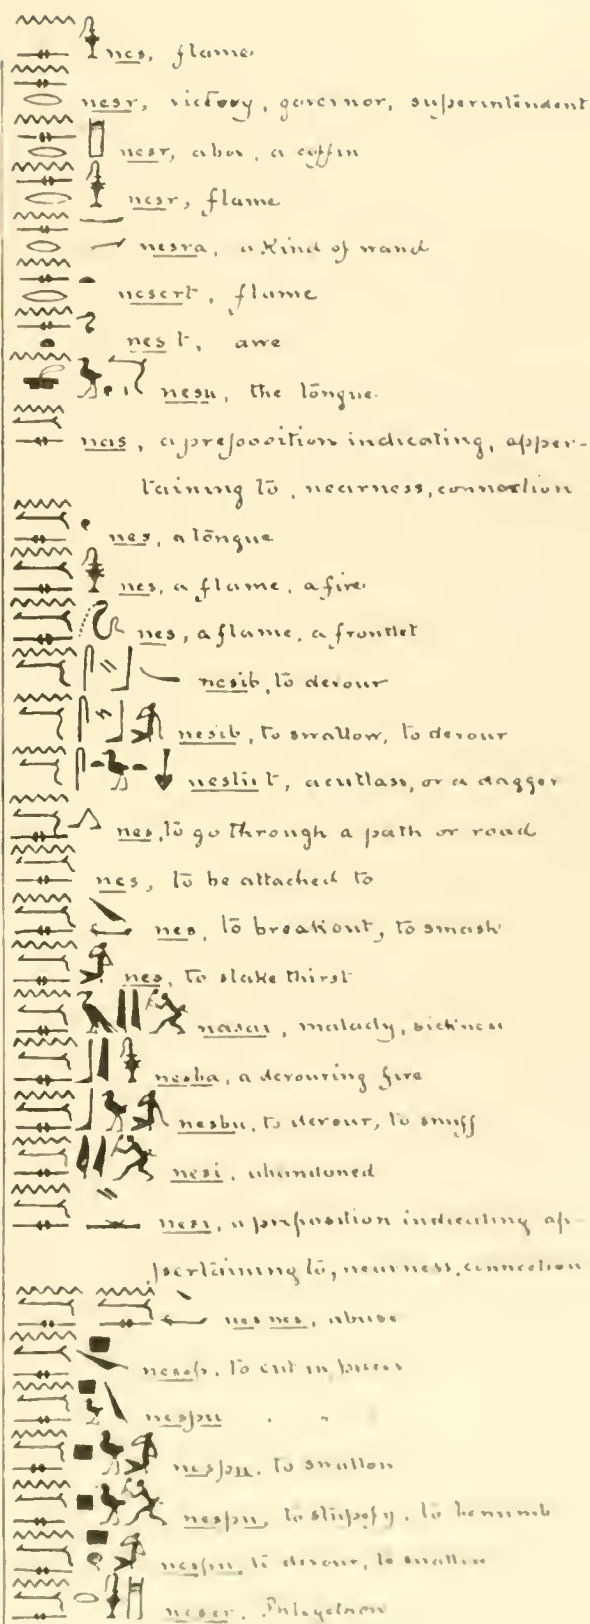 nes, flame
nesr, victory, governor, superintendent
nesr, a box, a coffin
nesr, flame
nesra, a kind of wand
nesert, flame
nest, awe
nesu, the tongue.
nas, a preposition indicating, apper-
taining to, nearness, connection
nes, a tongue
nes, a flame, a fire
nes, a flame, a frontlet
nesib, to devour
nesib, to swallow, to devour
a cutlass, or a dagger
nes, to go through a path or road
nes, to be attached to
nes, to break out, to smash
nes, to slake thirst
nasai, malady, sickness
nesba, a devouring fire
nesbu, to devour, to snuff
nesi, abandoned
nesi, a preposition indicating ap-
pertaining to, nearness, connection
nesnes, abuse
nesp, to cut in pieces
nespu " "
nespu, to swallow
nespu, to stupefy, to benumb
nespu, to devour, to swallow
neser, Phlegethon